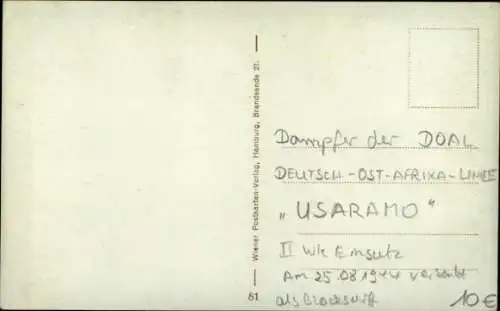 Wiener Postkarten-Verlag, Hamburg, Brandsende 21.
81
Dampfer der DOAL
DEUTSCH-OST-AFRIKA-LINIE
„USARAMO“
II WK Einsatz
Am 25.08.1944 versenkt
als Blockschiff
10€